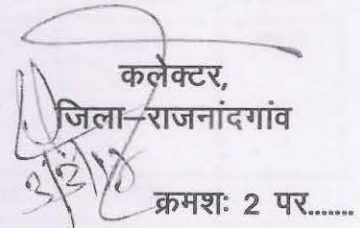 कलेक्टर,
जिला–राजनांदगांव
क्रमशः 2 पर.......